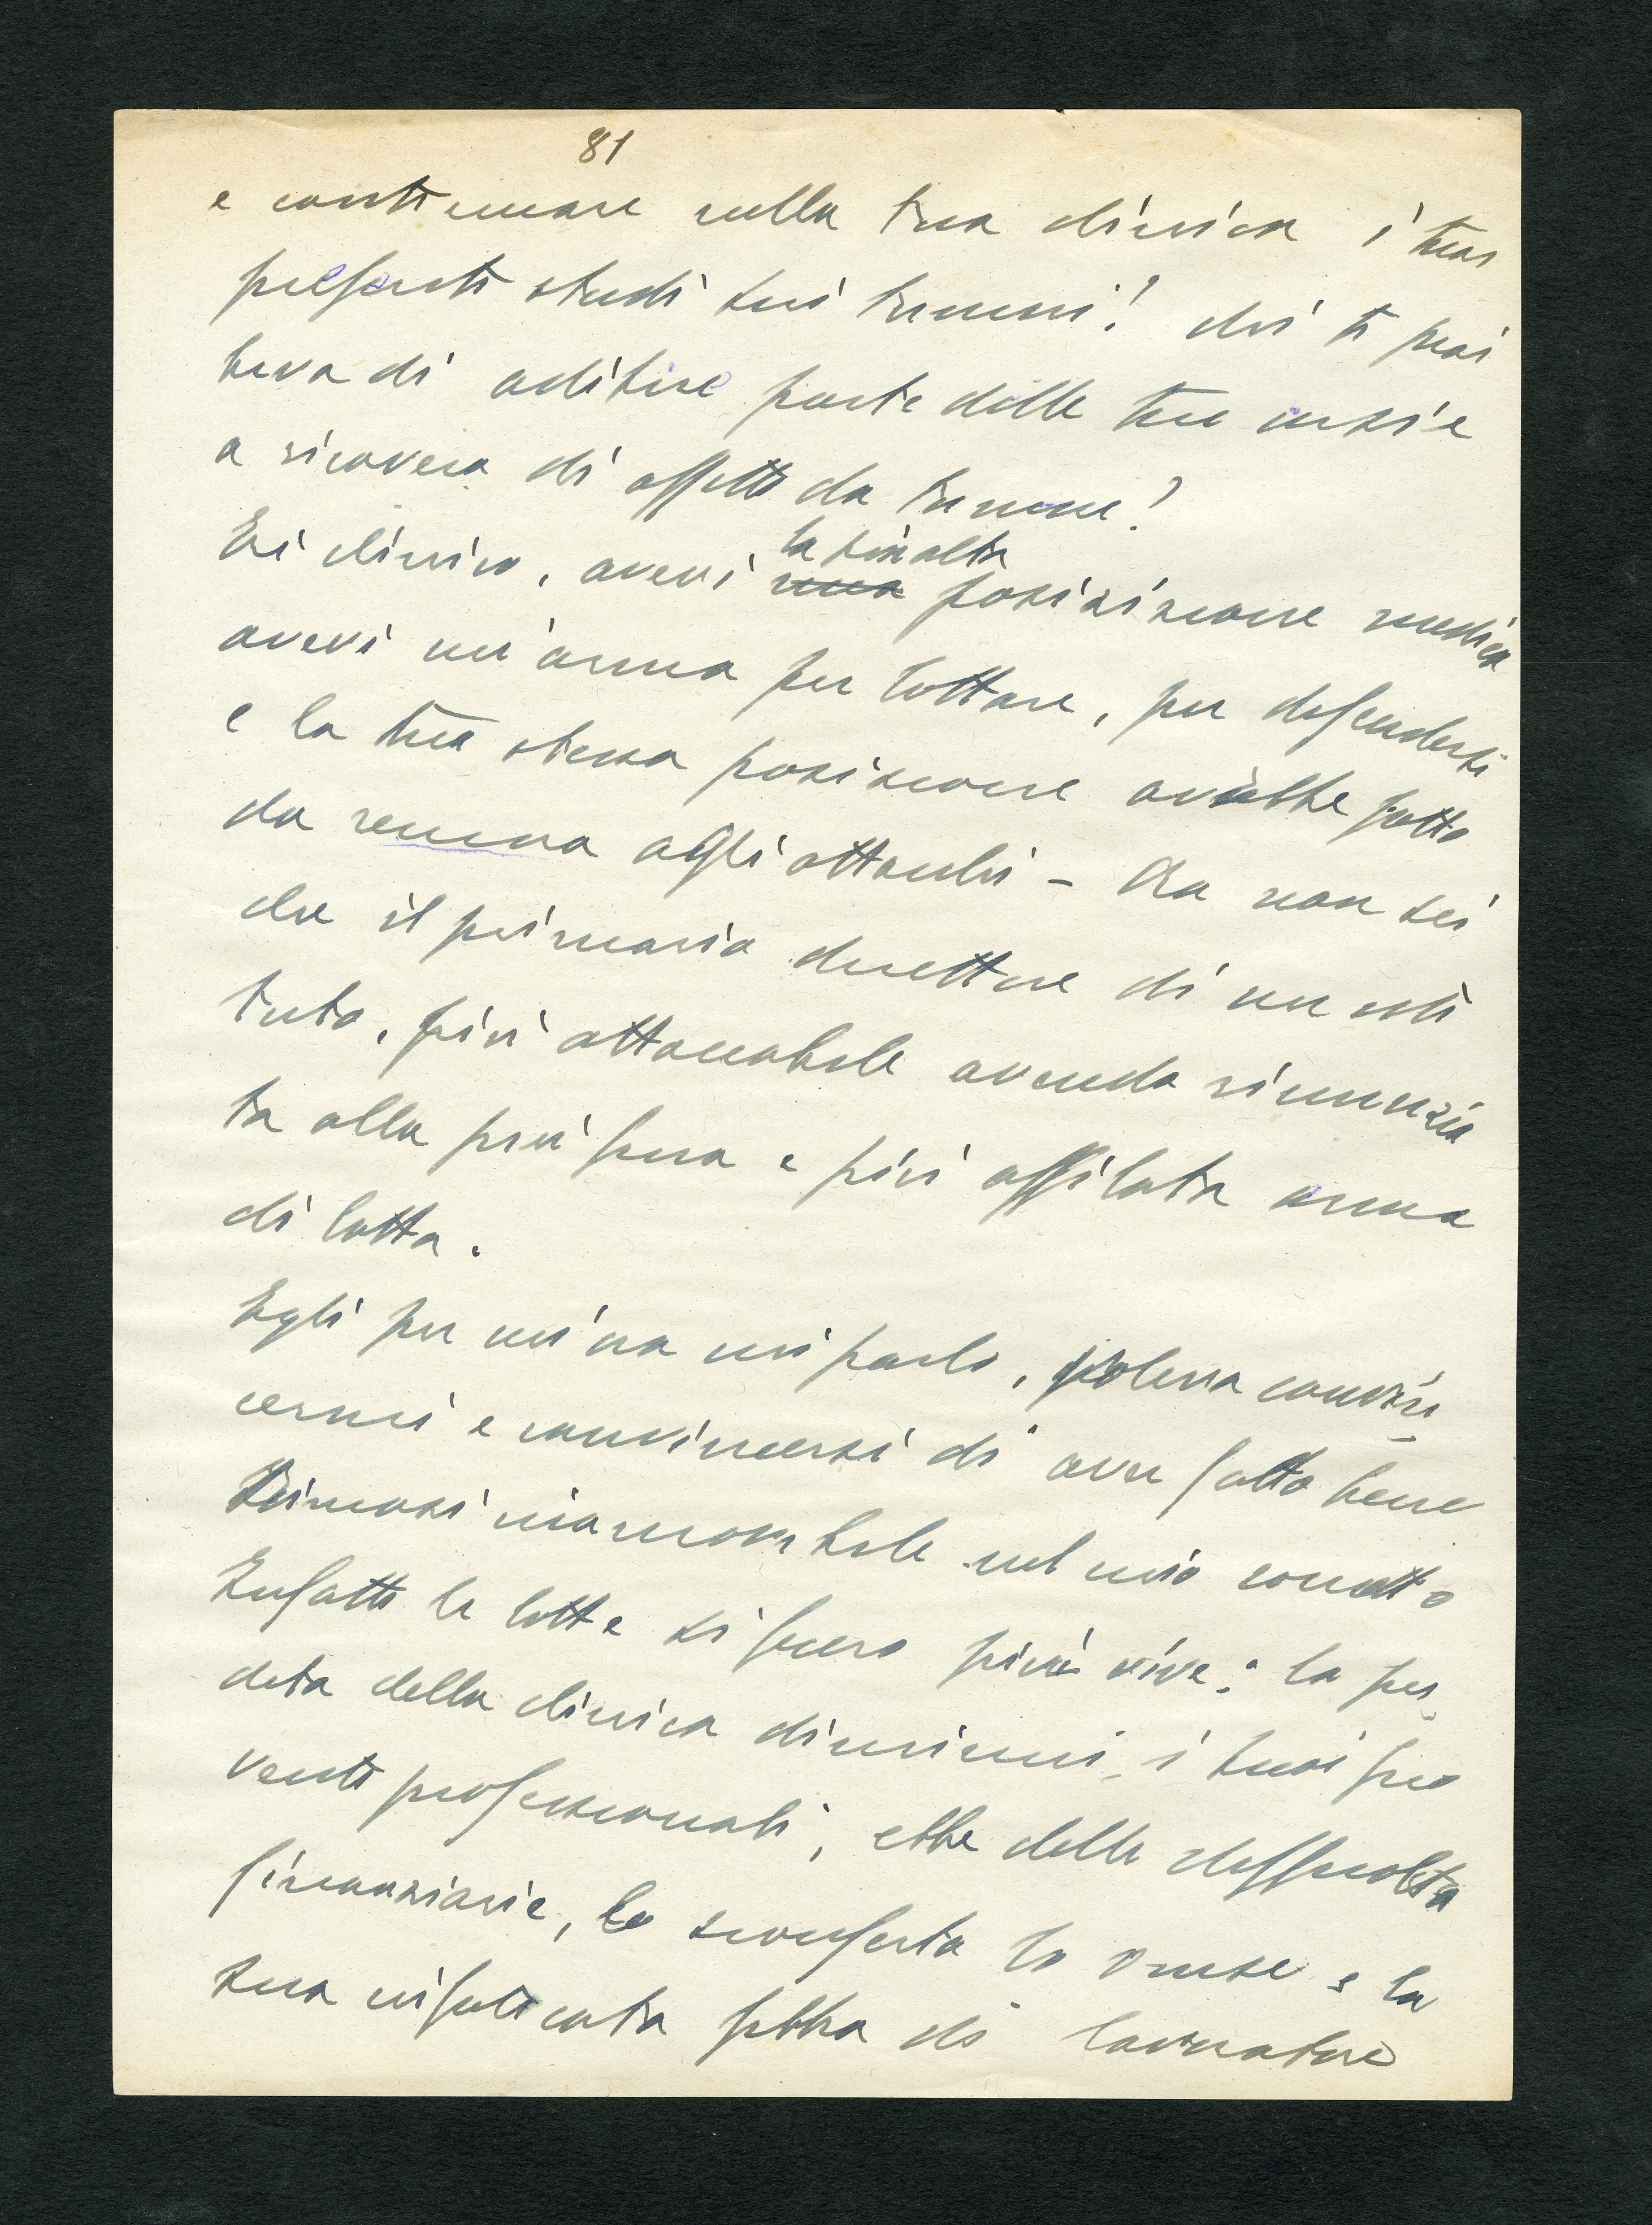 81
e continuare nella tua clinica i tuoi
preferiti studi sui tumori! chi ti proi
beva di adibire parte delle tue corsie
a ricovero di affetti da tumore!
Eri clinico, avevi la più alta ~~una~~ posizione medica
avevi un'arma per lottare, per difenderti
e la tua stessa posizione avrebbe fatto
da remora agli attacchi - Ora non sei
che il primario direttore di un isti
tuto, più attaccabile avendo rinunzia
to alla più pura e più affilata arma
di lotta.
Egli per un'ora mi parlò, voleva convin
cermi e convincersi di aver fatto bene
Rimasi inamovibile nel mio concetto
Infatti le lotte si fecero più vive: la per
dita della clinica diminuì i suoi pro
venti professionali, ebbe delle difficoltà
finanziarie, lo sconforto lo vinse e la
sua infaticata febbre di lavoratore